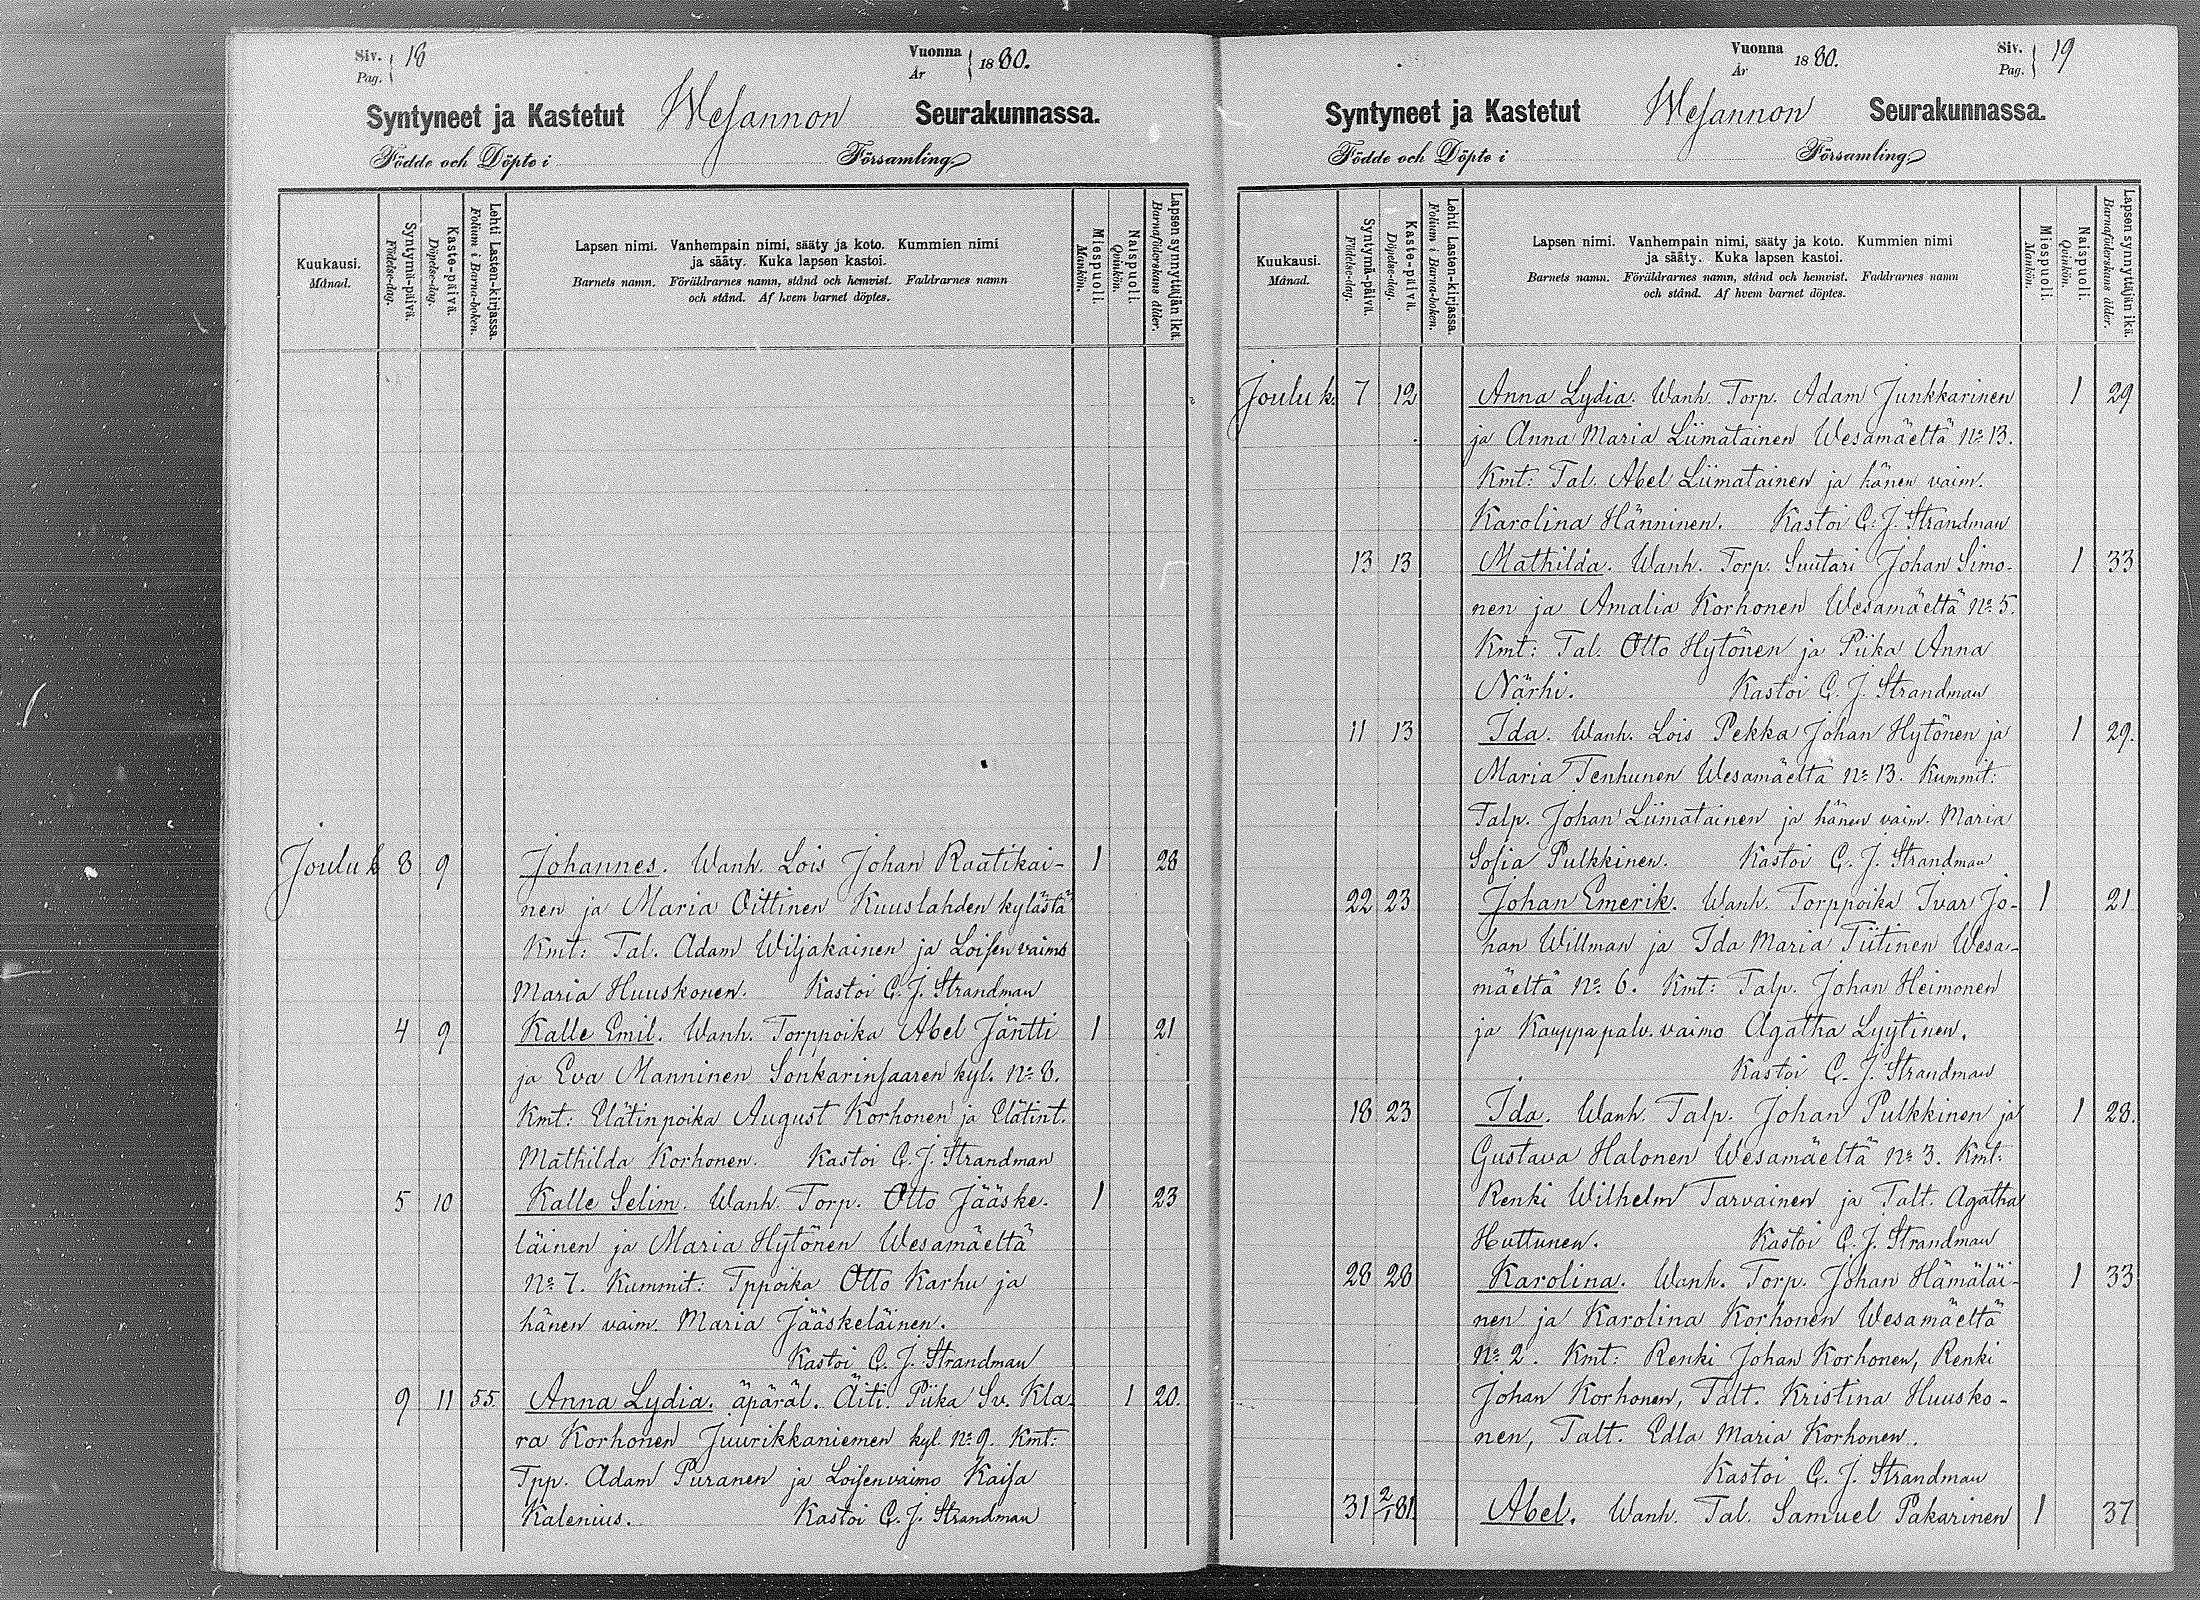 Siv. 18
Pag.
Vuonna 1880.
År
Syntyneet ja Kastetut Wesannon Seurakunnassa.
Födde och Döpte i Församling.
Kuukausi.
Månad.
Syntymä-päivä.
Födelse-dag.
Kaste-päivä.
Döpelse-dag.
Lehti Lasten-kirjassa.
Folium i Barna-boken.
Lapsen nimi. Vanhempain nimi, sääty ja koto. Kummien nimi
ja sääty. Kuka lapsen kastoi.
Barnets namn. Föräldrarnes namn, stånd och hemvist. Faddrarnes namn
och stånd. Af hvem barnet döptes.
Miespuoli.
Mankön.
Naispuoli.
Qvinkön.
Lapsen synnyttäjän ikä.
Barnaföderskans ålder.
Jouluk 8 9 Johannes. Wanh. Lois Johan Raatikai- 1 28
nen ja Maria Oittinen Kuuslahden kylästä
Kmt: Tal. Adam Wiljakainen ja Loisen vaimo
Maria Huuskonen. Kastoi C. J. Strandman
4 9 Kalle Emil. Wanh. Torppoika Abel Jäntti 1 21
ja Eva Manninen Sonkarinsaaren kyl. No 8.
Kmt: Elätinpoika August Korhonen ja Elätint.
Mathilda Korhonen. Kastoi C. J. Strandman
5 10 Kalle Selim. Wanh. Torp. Otto Jääske- 1 23
läinen ja Maria Hytönen Wesamäeltä
No 7. Kummit: Tppoika Otto Karhu ja
hänen vaim. Maria Jääskeläinen.
Kastoi C. J. Strandman
9 11 55. Anna Lydia. äpäräl. Äiti. Piika Sv. Kla- 1 20.
ra Korhonen Juurikkaniemen kyl. No 9. Kmt:
Tpp. Adam Puranen ja Loisenvaimo Kaisa
Kalenius. Kastoi C. J. Strandman
Vuonna 1880.
År
Siv. 19
Pag.
Syntyneet ja Kastetut Wesannon Seurakunnassa.
Födde och Döpte i Församling.
Kuukausi.
Månad.
Syntymä-päivä.
Födelse-dag.
Kaste-päivä.
Döpelse-dag.
Lehti Lasten-kirjassa.
Folium i Barna-boken.
Lapsen nimi. Vanhempain nimi, sääty ja koto. Kummien nimi
ja sääty. Kuka lapsen kastoi.
Barnets namn. Föräldrarnes namn, stånd och hemvist. Faddrarnes namn
och stånd. Af hvem barnet döptes.
Miespuoli.
Mankön.
Naispuoli.
Qvinkön.
Lapsen synnyttäjän ikä.
Barnaföderskans ålder.
Jouluk. 7 12 Anna Lydia. Wanh. Torp. Adam Junkkarinen 1 29
ja Anna Maria Liimatainen Wesamäeltä No 13.
Kmt: Tal. Abel Liimatainen ja hänen vaim.
Karolina Hänninen. Kastoi C. J. Strandman
13 13 Mathilda. Wanh. Torp. Suutari Johan Simo- 1 33
nen ja Amalia Korhonen Wesamäeltä No 5.
Kmt: Tal. Otto Hytönen ja Piika Anna
Närhi. Kastoi C. J. Strandman
11 13 Ida. Wanh. Lois Pekka Johan Hytönen ja 1 29.
Maria Tenhunen Wesamäeltä No 13. Kummit:
Talp. Johan Liimatainen ja hänen vaim. Maria
Sofia Pulkkinen. Kastoi C. J. Strandman
22 23 Johan Emerik. Wanh. Torppoika Ivar Jo- 1 21
han Willman ja Ida Maria Tiitinen Wesa-
mäeltä No 6. Kmt: Talp. Johan Heimonen
ja Kauppapalv. vaimo Agatha Lyytinen.
Kastoi C. J. Strandman
18 23 Ida. Wanh. Talp. Johan Pulkkinen ja 1 28.
Gustava Halonen Wesamäeltä No 3. Kmt:
Renki Wilhelm Tarvainen ja Talt. Agatha
Huttunen. Kastoi C. J. Strandman
28 28 Karolina. Wanh. Torp. Johan Hämäläi- 1 33
nen ja Karolina Korhonen Wesamäeltä
No 2. Kmt: Renki Johan Korhonen, Renki
Johan Korhonen, Talt. Kristina Huusko-
nen, Talt. Edla Maria Korhonen.
Kastoi C. J. Strandman
31 2/1 81. Abel. Wanh. Tal. Samuel Pakarinen 1 37